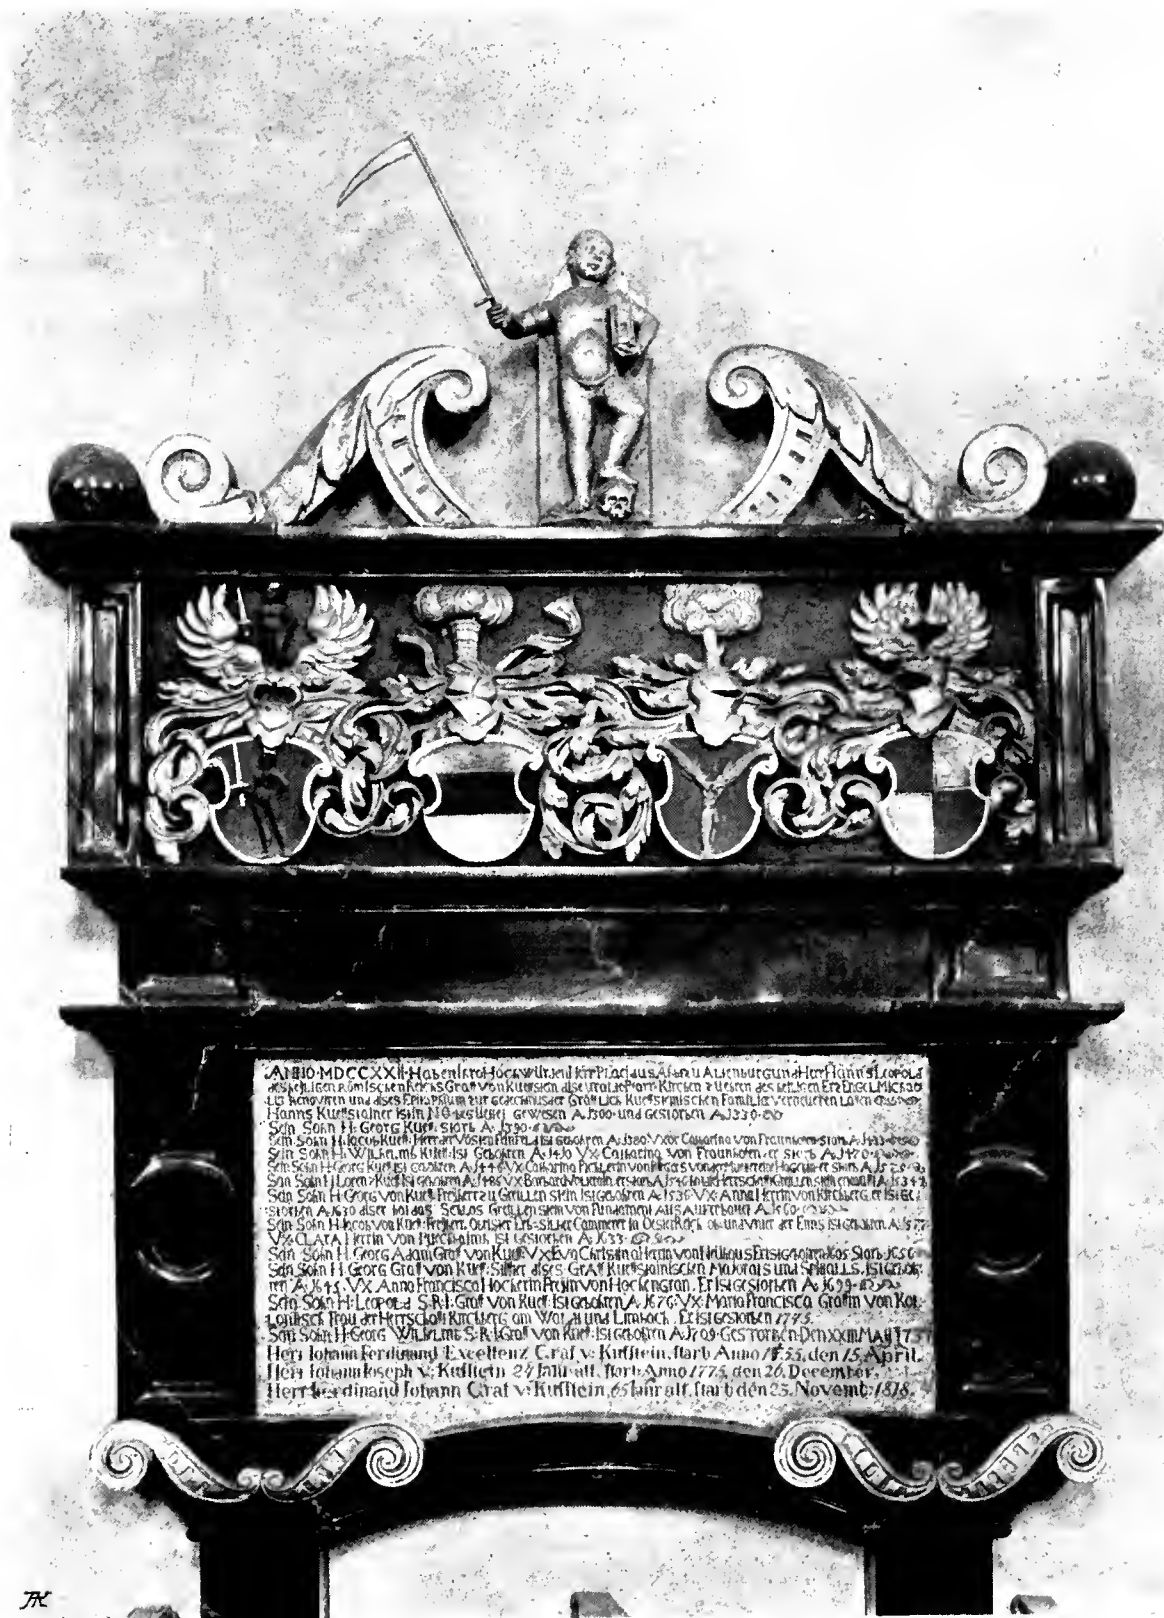 ANNO·MDCCXXII·Haben Ihro Hochwürden Herr Placidus Abt zu Altenburg und Herr Hanns Leopold
des heiligen Römischen Reichs Graf von Kuefstein dise uralte Pfarr Kirchen zu Ehren des heiligen Ertz Engel Micha
lis renoviren und dises Epitaphium zur gedechtnus der Gräflich Kuefsteinischen Familia verneuern lasen
Hanns Kuefstainer ist in NÖ begüthet gewesen A. 1300 und Gestorben A. 1330
Sein Sohn H. Georg Kuef: starb A. 1390
Sein Sohn H. Jacob Kuef: Herr der Vösten ist gebohren A. 1380 Vxor Catharina von Fraunhofen starb A. 1433
Sein Sohn H. Wilhelmb Kuef: Ist Gebohren A. 1430 Vx Catharina von Fraunhofen er starb A. 1470
Sein Sohn H. Georg Kuef: ist gebohren A. 1446 Vx Catharina Pichlerin von der er starb A.
Sein Sohn H. Lorenz Kuef: Ist gebohren A. 1486 Vx Barbara er Herrschafft Greillenstein
Sein Sohn H. Georg von Kuef: Freiherr zu Greillenstein Ist gebohren A. 1536 Vx Anna Herrin von Kirchberg er Ist Ge
storben A. 1630 diser hat das Schlos Greillenstein vom Fundament aufs Auferbauet A.
Sein Sohn H. Jacob von Kuef: Freiherr Obrister Erb-Silber Camerer in Oesterreich ob und unter der Enns Ist gebohren A. 1577
Vx CLARA Herrin von Puechaimb Ist Gestorben A. 1633
Sein Sohn H. Georg Adam Graf von Kuef: Vx Eva Christina Herin von Neühaus Er ist gebohren Starb 1656
Sein Sohn H. Georg Graf von Kuef: Stifter dises Gräf Kuefstainischen Majorats und Spitalls, Ist geboh-
ren A. 1645. Vx Anna Francisca Hockerin Freyin von Hockengran. Er Ist gestorben A. 1699
Sein Sohn H. Leopold S.R.I. Graf von Kuef: Ist gebohren A. 1676. Vx Maria Francisca Gräfin von Kol-
lonitsch Frau der Herrschafft Kirchberg am Wald und Limbach. Er ist gestorben 1745.
Sein Sohn H. Georg Wilhelmb S.R.I. Graf von Kuef: Ist gebohren A. 1709 GESTORBEN DEN XXIII MAII
Herr Iohann Ferdinand Excellenz Graf v: Kufstein, starb Anno 1755, den 15 April.
Herr Iohann Ioseph v: Kufstein 24 Iahr alt, starb Anno 1775, den 26, December.
Herr Ferdinand Iohann Graf v: Kufstein, 65 Iahr alt, starb den 23. Novemb: 1818.